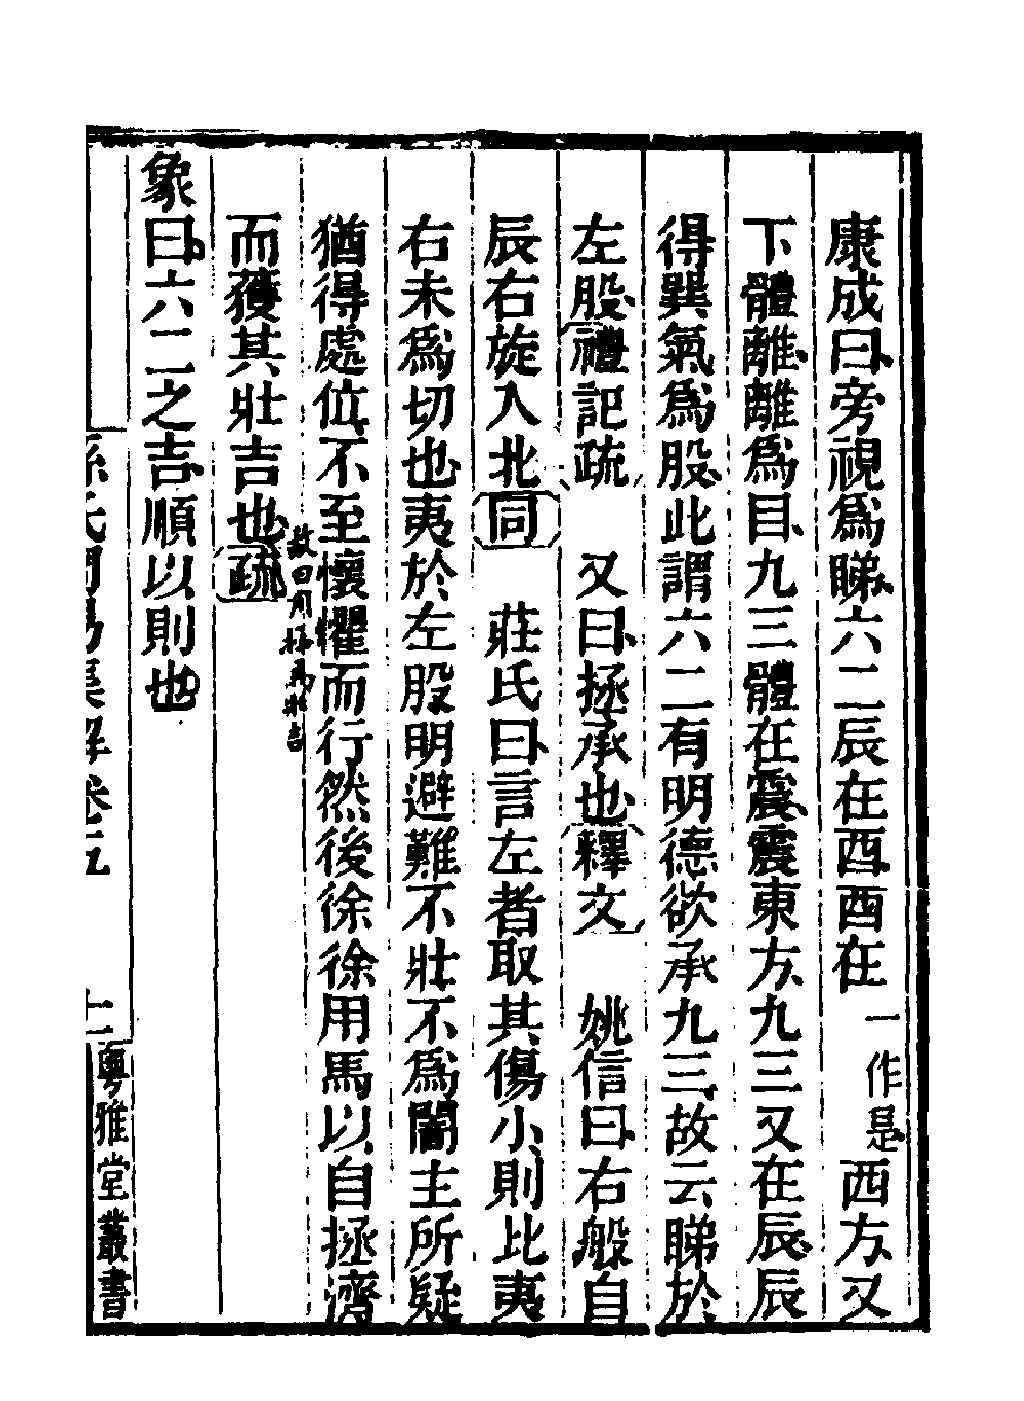 康成曰旁視爲睇六二辰在酉酉在一作是西方又
下體離離爲目九三體在震震東方九三又在辰辰
得巽氣爲股此謂六二有明德欲承九三故云睇於
左股禮記疏　又曰拯承也釋文　姚信曰右般自
辰右旋入北同　莊氏曰言左者取其傷小則比夷
右未爲切也夷於左股明避難不壯不爲闇主所疑
猶得處位不至懷懼而行然後徐徐用馬以自拯濟
而獲其壯吉也疏
故曰用拯馬壯吉
象曰六二之吉順以則也
孫氏周易集解卷五
粵雅堂叢書